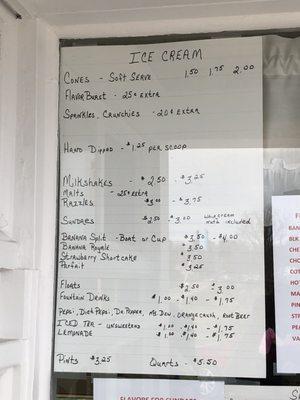 ICE CREAM
CONES - SOFT SERVE 1.50 1.75 2.00
FLAVOR BURST - 25¢ EXTRA
SPRINKLES, CRUNCHIES - 20¢ EXTRA
HAND DIPPED - $1.25 PER SCOOP
MILKSHAKES - $2.50 - $3.25
MALTS - 25¢ EXTRA
RAZZLES $3.00 - $3.75
SUNDAES $2.50 $3.00 WHIPCREAM
NUTS INCLUDED
BANANA SPLIT - BOAT OR CUP $3.50 - $4.00
BANANA ROYALE $3.50
STRAWBERRY SHORTCAKE $3.50
PARFAIT $3.25
FLOATS $2.50 $3.00
FOUNTAIN DRINKS $1.00 - $1.40 - $1.75
PEPSI, DIET PEPSI, DR. PEPPER, MT. DEW, ORANGE CRUSH, ROOT BEER
ICED TEA - UNSWEETENED $1.00 - $1.40 - $1.75
LEMONADE $1.00 - $1.40 - $1.75
PINTS $3.25 QUARTS - $5.50
FLAVORS FOR SUNDAES